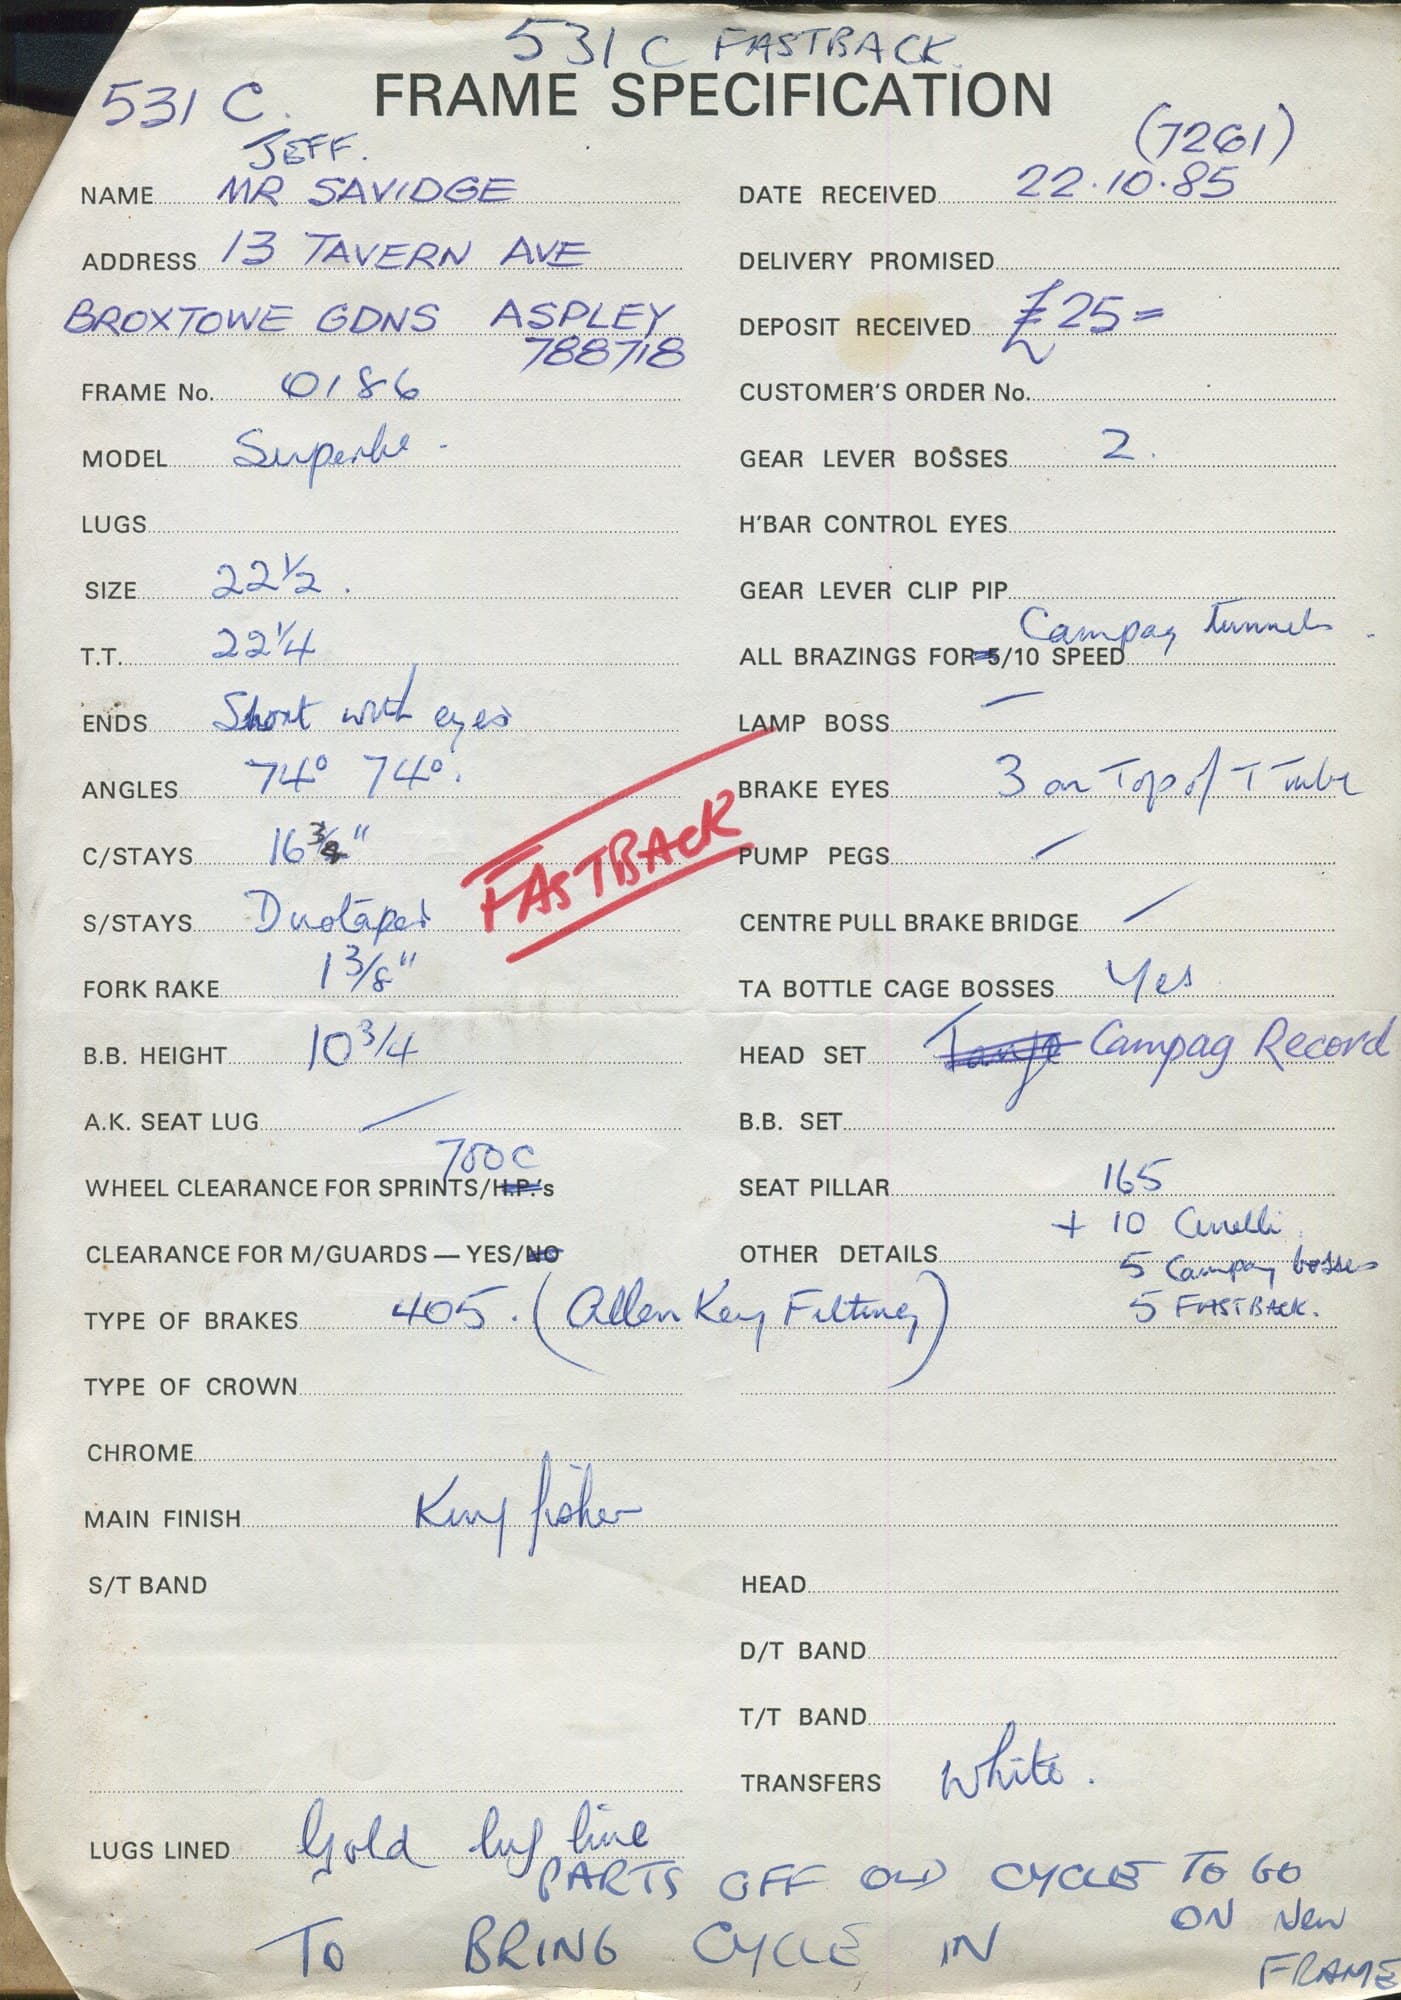 531 C FASTBACK.
531 C.
FRAME SPECIFICATION
(7261)
JEFF.
NAME MR SAVIDGE
DATE RECEIVED 22.10.85
ADDRESS 13 TAVERN AVE
DELIVERY PROMISED
BROXTOWE GDNS ASPLEY
788718
DEPOSIT RECEIVED £25=
FRAME No. 0186
CUSTOMER'S ORDER No.
MODEL Superbe
GEAR LEVER BOSSES 2.
LUGS
H'BAR CONTROL EYES
SIZE 22 1/2.
GEAR LEVER CLIP PIP
T.T. 22 1/4
Campag tunnels
ALL BRAZINGS FOR 5/10 SPEED
ENDS Short with eyes
LAMP BOSS —
ANGLES 74° 74°.
BRAKE EYES 3 on Top of T Tube
C/STAYS 16 3/8"
FASTBACK
PUMP PEGS
S/STAYS Duotaper
CENTRE PULL BRAKE BRIDGE
FORK RAKE 1 3/8"
TA BOTTLE CAGE BOSSES Yes
B.B. HEIGHT 10 3/4
HEAD SET Tange Campag Record
A.K. SEAT LUG
B.B. SET
700C
WHEEL CLEARANCE FOR SPRINTS/H.P.'s
SEAT PILLAR 165
+ 10 Cinelli
CLEARANCE FOR M/GUARDS — YES/NO
OTHER DETAILS 5 Campag bosses
5 FASTBACK.
TYPE OF BRAKES 405. (Allen Key Fitting)
TYPE OF CROWN
CHROME
MAIN FINISH Kingfisher
S/T BAND
HEAD
D/T BAND
T/T BAND
TRANSFERS White.
LUGS LINED Gold lug line
PARTS OFF OLD CYCLE TO GO
ON New
FRAME
TO BRING CYCLE IN